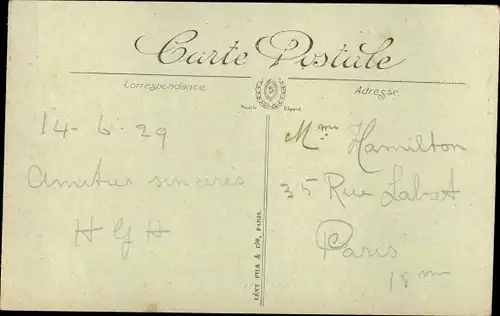 Carte Postale
Correspondance
Adresse
Marque Déposée
14-6-29
Amitiés sincères
H G H
Mme Hamilton
35 Rue Labat
Paris
18me
LÉVY FILS & Cie, PARIS